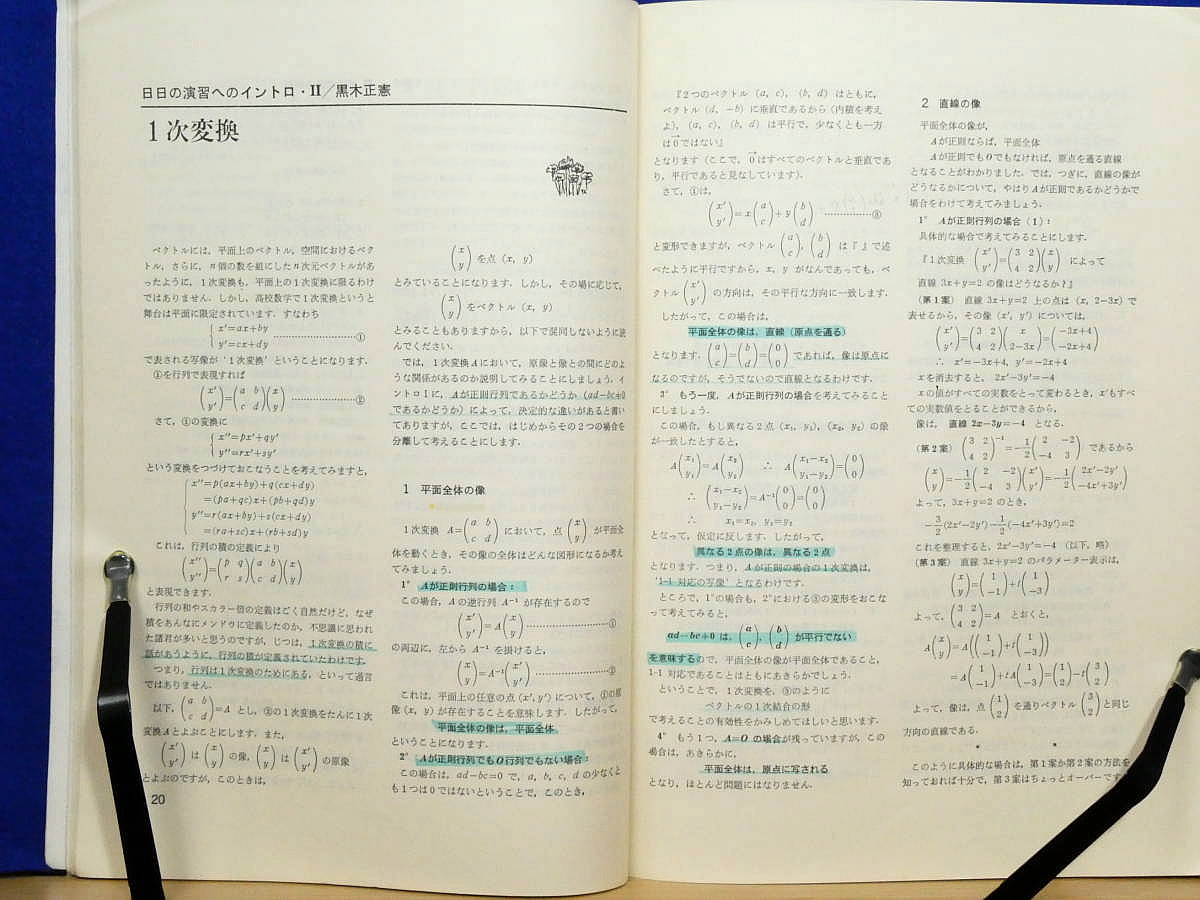 日日の演習へのイントロ・II／黒木正憲
1次変換
ベクトルには，平面上のベクトル，空間におけるベク
トル，さらに，n個の数を組にしたn次元ベクトルがあ
ったように，1次変換も，平面上の1次変換に限るわけ
ではありません．しかし，高校数学で1次変換というと
舞台は平面に限定されています．すなわち
x'=ax+by
y'=cx+dy ……………………①
で表される写像が '1次変換' ということになります．
①を行列で表現すれば
(x' y')=(a b c d)(x y) …………………②
さて，①の変換に
x''=px'+qy'
y''=rx'+sy'
という変換をつづけておこなうことを考えてみますと，
x''=p(ax+by)+q(cx+dy)
=(pa+qc)x+(pb+qd)y
y''=r(ax+by)+s(cx+dy)
=(ra+sc)x+(rb+sd)y
これは，行列の積の定義により
(x'' y'')=(p q r s)(a b c d)(x y)
と表現できます．
行列の和やスカラー倍の定義はごく自然だけど，なぜ
積をあんなにメンドウに定義したのか，不思議に思われ
た諸君が多いと思うのですが，じつは，1次変換の積に
話があうように，行列の積が定義されていたわけです．
つまり，行列は1次変換のためにある，といって過言
ではありません．
以下，(a b c d)=A とし，②の1次変換をたんに1次
変換Aとよぶことにします．また，
(x' y') は (x y) の像，(x y) は (x' y') の原像
とよぶのですが，このときは，
20
(x y) を点 (x, y)
とみていることになります．しかし，その場に応じて，
(x y) をベクトル (x, y)
とみることもありますから，以下で混同しないように読
んでください．
では，1次変換Aにおいて，原像と像との間にどのよ
うな関係があるのか説明してみることにしましょう．イ
ントロIに，Aが正則行列であるかどうか (ad−bc≠0
であるかどうか) によって，決定的な違いがあると書い
てありますが，ここでは，はじめからその2つの場合を
分離して考えることにします．
1 平面全体の像
1次変換 A=(a b c d) において，点 (x y) が平面全
体を動くとき，その像の全体はどんな図形になるか考え
てみましょう．
1° Aが正則行列の場合：
この場合，Aの逆行列 A⁻¹ が存在するので
(x' y')=A(x y) …………………①
の両辺に，左から A⁻¹ を掛けると，
(x y)=A⁻¹(x' y') …………………②
これは，平面上の任意の点(x', y')について，①の原
像 (x, y) が存在することを意味します．したがって，
平面全体の像は，平面全体
ということになります．
2° Aが正則行列でもO行列でもない場合：
この場合は，ad−bc=0 で，a, b, c, d の少なくと
も1つは0ではないということで，このとき，
『2つのベクトル (a, c)，(b, d) はともに，
ベクトル (d, −b) に垂直であるから (内積を考え
よ)，(a, c)，(b, d) は平行で，少なくとも一方
は0ではない』
となります (ここで，0はすべてのベクトルと垂直であ
り，平行であると見なしています)．
さて，①は，
(x' y')=x(a c)+y(b d) ……………③
と変形できますが，ベクトル (a c), (b d) は『 』で述
べたように平行ですから，x, y がなんであっても，ベ
クトル (x' y') の方向は，その平行な方向に一致します．
したがって，この場合は，
平面全体の像は，直線 (原点を通る)
となります．(a c)=(b d)=(0 0) であれば，像は原点に
なるのですが，そうでないので直線となるわけです．
3° もう一度，Aが正則行列の場合を考えてみること
にしましょう．
この場合，もし異なる2点 (x₁, y₁)，(x₂, y₂) の像
が一致したとすると，
A(x₁ y₁)=A(x₂ y₂) ∴ A(x₁−x₂ y₁−y₂)=(0 0)
∴ (x₁−x₂ y₁−y₂)=A⁻¹(0 0)=(0 0)
∴ x₁=x₂, y₁=y₂
となって，仮定に反します．したがって，
異なる2点の像は，異なる2点
となります．つまり，Aが正則の場合の1次変換は，
'1-1 対応の写像' となるわけです．
ところで，1°の場合も，2°における③の変形をおこな
って考えてみると，
ad−bc≠0 は，(a c), (b d) が平行でない
を意味するので，平面全体の像が平面全体であること，
1-1 対応であることはともにあきらかでしょう．
ということで，1次変換を，③のように
ベクトルの1次結合の形
で考えることの有効性をかみしめてほしいと思います．
4° もう1つ，A=O の場合が残っていますが，この
場合は，あきらかに，
平面全体は，原点に写される
となり，ほとんど問題にはなりません．
2 直線の像
平面全体の像が，
Aが正則ならば，平面全体
Aが正則でもOでもなければ，原点を通る直線
となることがわかりました．では，つぎに，直線の像が
どうなるかについて，やはりAが正則であるかどうかで
場合をわけて考えてみましょう．
1° Aが正則行列の場合 (1)：
具体的な場合で考えてみることにします．
『1次変換 (x' y')=(3 2 4 2)(x y) によって
直線 3x+y=2 の像はどうなるか？』
(第1案) 直線 3x+y=2 上の点は (x, 2−3x) で
表せるから，その像 (x', y') については，
(x' y')=(3 2 4 2)(x 2−3x)=(−3x+4 −2x+4)
∴ x'=−3x+4, y'=−2x+4
xを消去すると，2x'−3y'=−4
xの値がすべての実数をとって変わるとき，x'もすべ
ての実数値をとることができるから，
像は，直線 2x−3y=−4 となる．
(第2案) (3 2 4 2)⁻¹=−1/2(2 −2 −4 3) であるから
(x y)=−1/2(2 −2 −4 3)(x' y')=−1/2(2x'−2y' −4x'+3y')
よって，3x+y=2 のとき，
−3/2(2x'−2y')−1/2(−4x'+3y')=2
これを整理すると，2x'−3y'=−4 (以下，略)
(第3案) 直線 3x+y=2 のパラメーター表示は，
(x y)=(1 −1)+t(1 −3)
よって，(3 2 4 2)=A とおくと，
A(x y)=A((1 −1)+t(1 −3))
=A(1 −1)+tA(1 −3)=(1 2)−t(3 2)
よって，像は，点 (1 2) を通りベクトル (3 2) と同じ
方向の直線である．
* *
このように具体的な場合は，第1案か第2案の方法を
知っておれば十分で，第3案はちょっとオーバーです